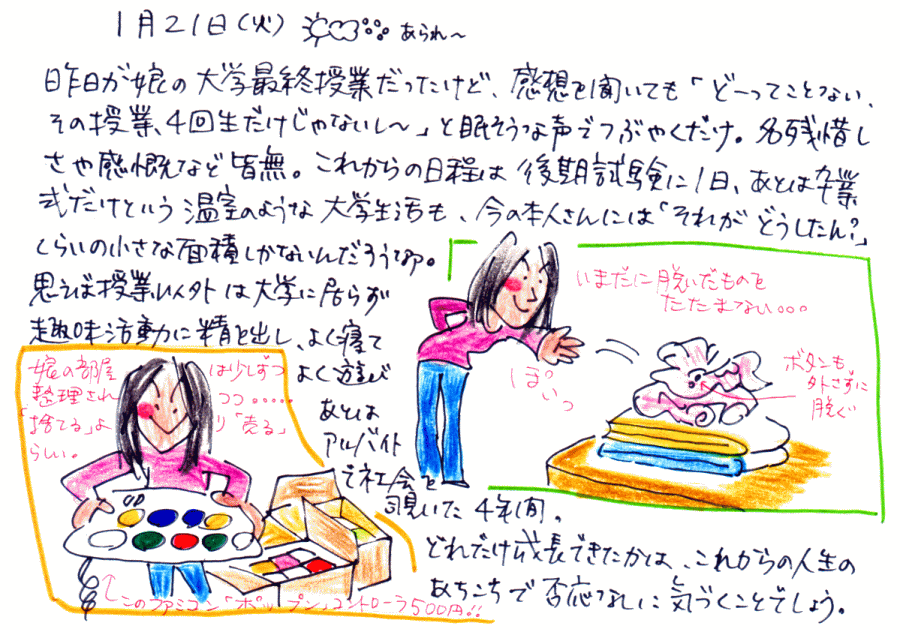 1月21日(火) あられ〜
昨日が娘の大学最終授業だったけど、感想を聞いても「どーってことない、
その授業、4回生だけじゃないし〜」と眠そうな声でつぶやくだけ。名残惜し
さや感慨など皆無。これからの日程は後期試験に1日、あとは卒業
式だけという温室のような大学生活も、今の本人さんには「それがどうしたん?」
くらいの小さな面積しかないんだろうなァ。
思えば授業以外は大学に居らず
趣味活動に精を出し、よく寝て
よく遊び
あとは
アルバイト
で社会を
覗いた4年間。
どれだけ成長できたかは、これからの人生の
あちこちで否応なしに気づくことでしょう。
いまだに脱いだものを
たたまない。。。
ボタンも
外さずに
脱ぐ
ぽいっ
娘の部屋は少しずつ
整理されつつ・・・・・
「捨てる」より「売る」
らしい。
このファミコン「ポップン」コントローラ500円!!